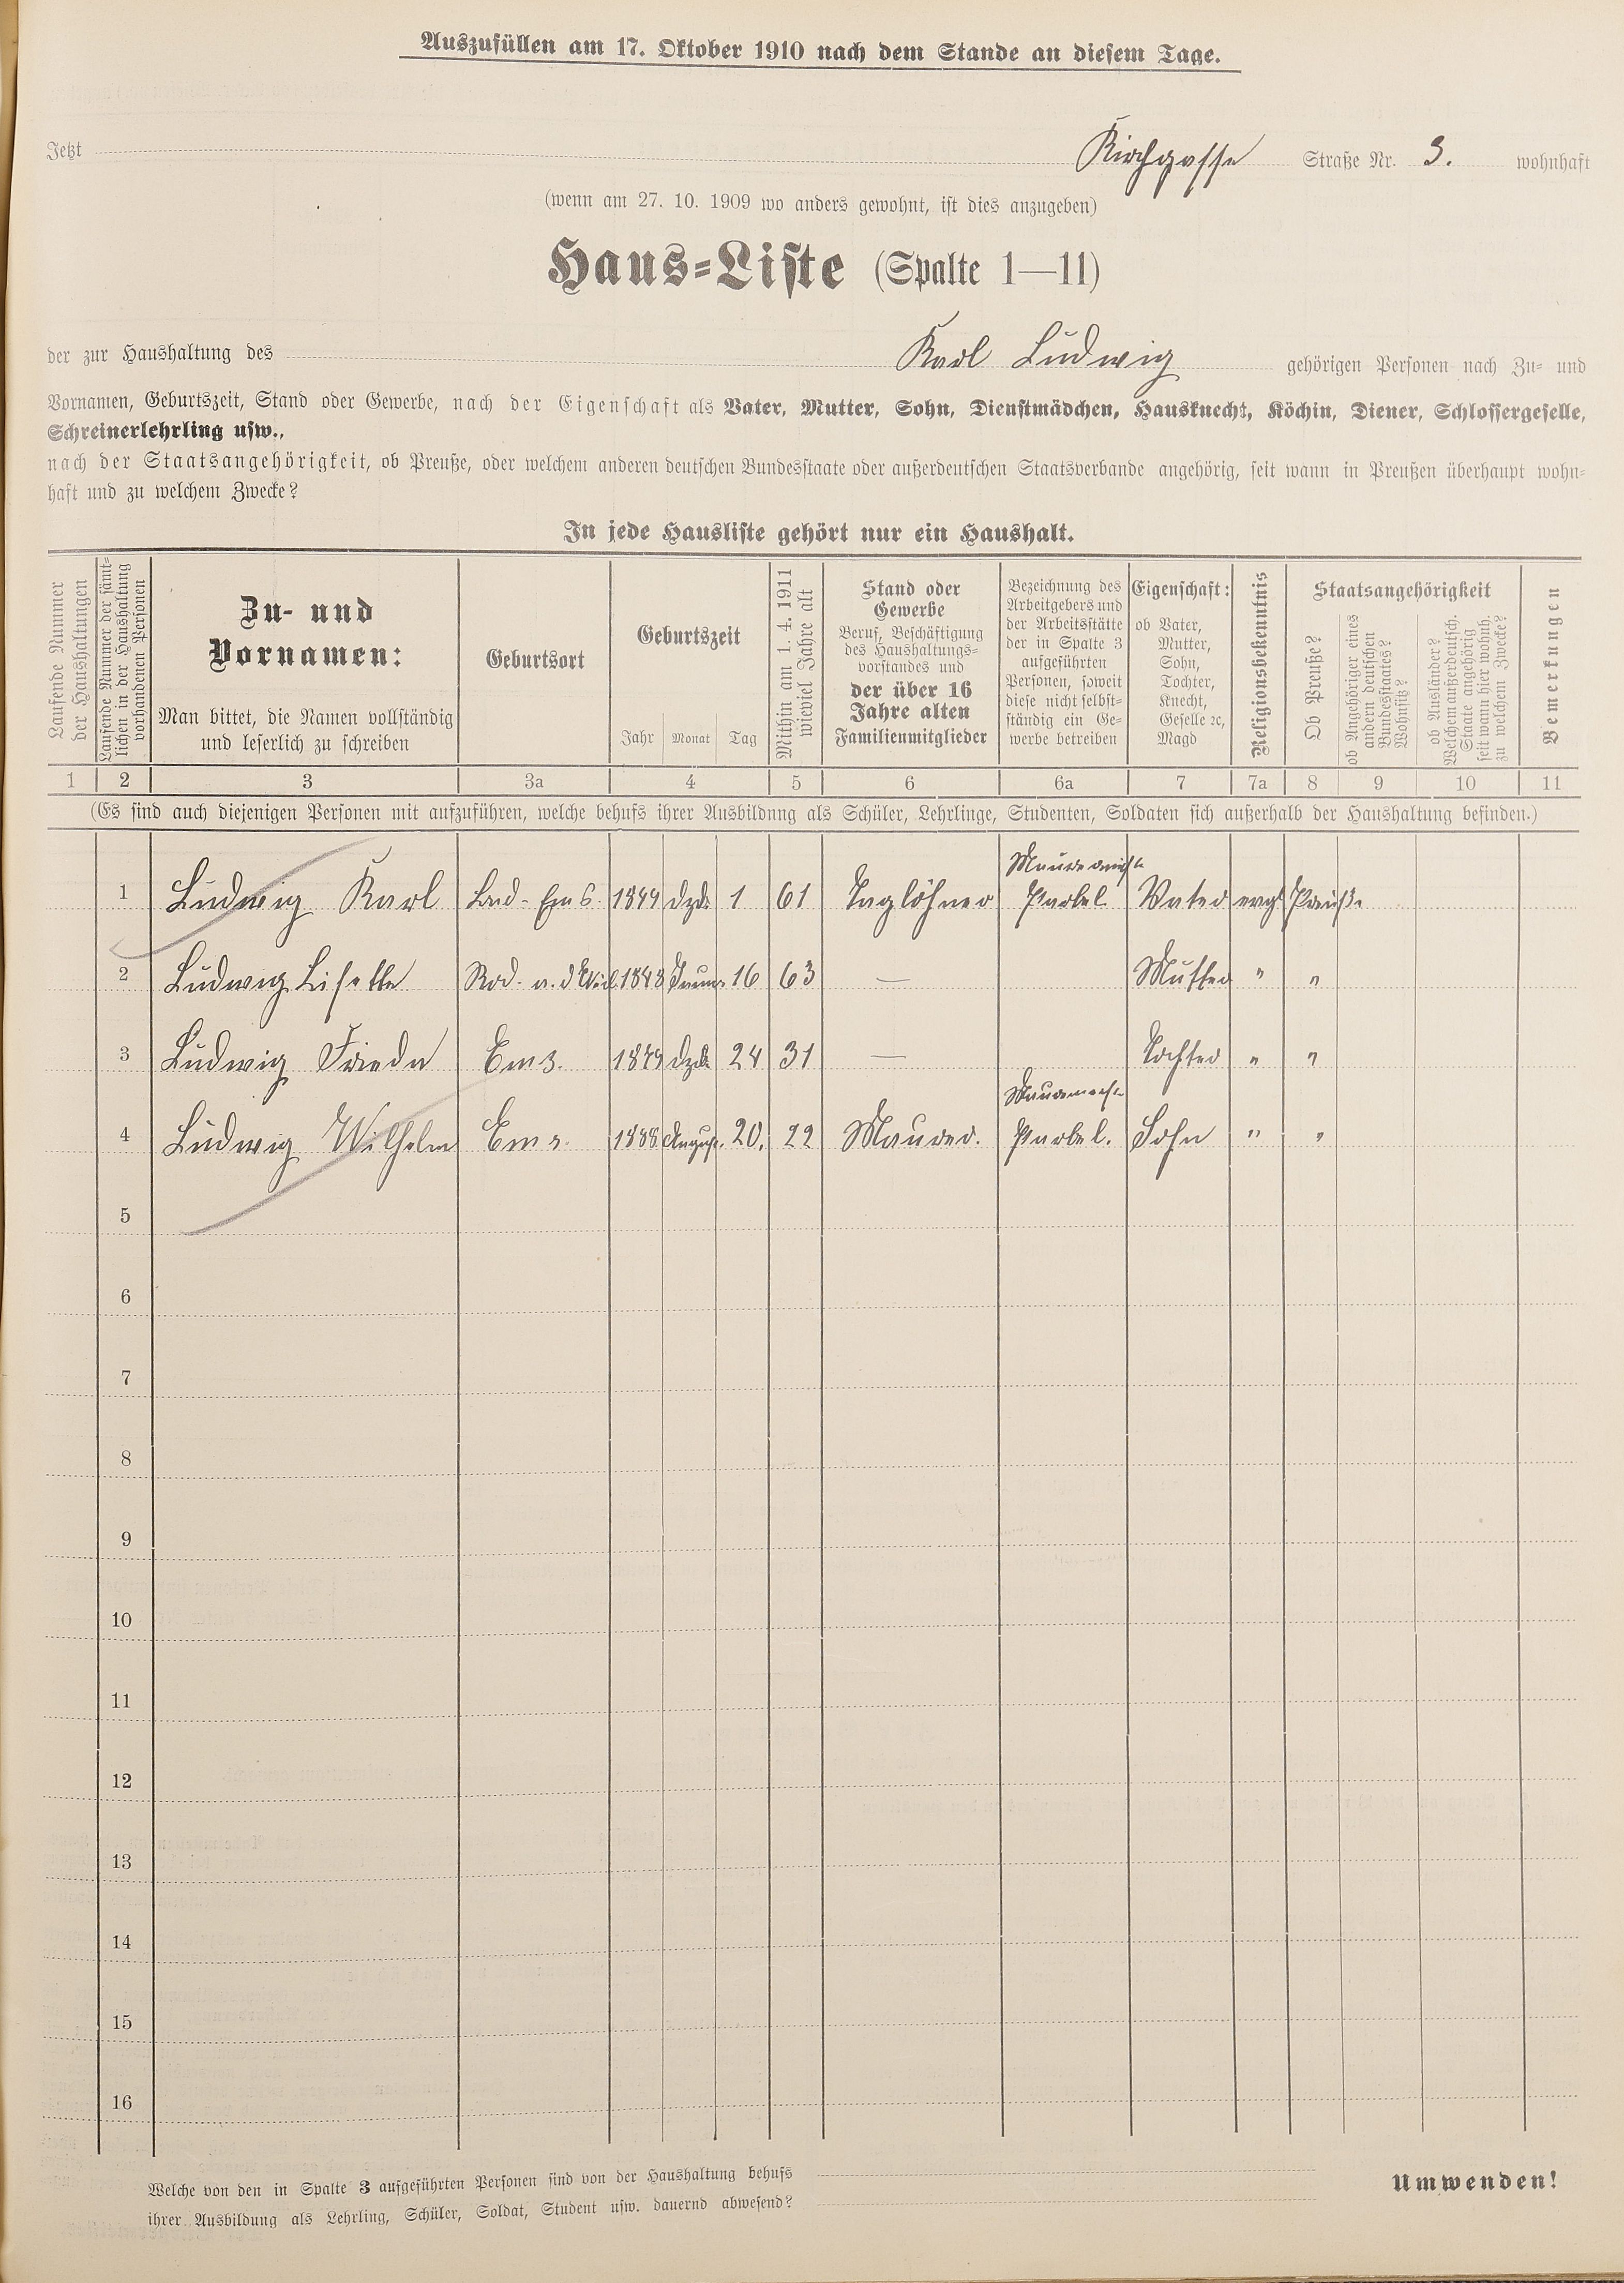 Auszufüllen am 17. Oktober 1910 nach dem Stande an diesem Tage.
Jetzt Kirchgasse Straße Nr. 3. wohnhaft
(wenn am 27. 10. 1909 wo anders gewohnt, ist dies anzugeben)
Haus-Liste (Spalte 1—11)
der zur Haushaltung des Karl Ludwig gehörigen Personen nach Zu- und
Vornamen, Geburtszeit, Stand oder Gewerbe, nach der Eigenschaft als Vater, Mutter, Sohn, Dienstmädchen, Hausknecht, Köchin, Diener, Schlossergeselle,
Schreinerlehrling usw.,
nach der Staatsangehörigkeit, ob Preuße, oder welchem anderen deutschen Bundesstaate oder außerdeutschen Staatsverbande angehörig, seit wann in Preußen überhaupt wohn-
haft und zu welchem Zwecke?
In jede Hausliste gehört nur ein Haushalt.
Laufende Nummer
der Haushaltungen
Laufende Nummer der sämt-
lichen in der Haushaltung
vorhandenen Personen
Zu- und
Vornamen:
Man bittet, die Namen vollständig
und leserlich zu schreiben
Geburtsort
Geburtszeit
Jahr Monat Tag
Mithin am 1. 4. 1911
wieviel Jahre alt
Stand oder
Gewerbe
Beruf, Beschäftigung
des Haushaltungs-
vorstandes und
der über 16
Jahre alten
Familienmitglieder
Bezeichnung des
Arbeitgebers und
der Arbeitsstätte
der in Spalte 3
aufgeführten
Personen, soweit
diese nicht selbst-
ständig ein Ge-
werbe betreiben
Eigenschaft:
ob Vater,
Mutter,
Sohn,
Tochter,
Knecht,
Geselle ꝛc,
Magd
Religionsbekenntnis
Staatsangehörigkeit
Ob Preuße?
ob Angehöriger eines
andern deutschen
Bundesstaates?
Wohnsitz?
ob Ausländer?
Welchem außerdeutsch.
Staate angehörig
seit wann hier wohnh.
zu welchem Zwecke?
Bemerkungen
1 2 3 3a 4 5 6 6a 7 7a 8 9 10 11
(Es sind auch diejenigen Personen mit aufzuführen, welche behufs ihrer Ausbildung als Schüler, Lehrlinge, Studenten, Soldaten sich außerhalb der Haushaltung befinden.)
1 Ludwig Karl Bad-Ems. 1849 Dzb. 1 61 Taglöhner Vater evgl Preuße
2 Ludwig Lisette 1848 16 63 — Mutter " "
3 Ludwig Frieda Ems. 1879 Dzb. 24 31 — Tochter " "
4 Ludwig Wilhelm Ems. 1888 August. 20. 22 Maurer. Sohn " "
5
6
7
8
9
10
11
12
13
14
15
16
Welche von den in Spalte 3 aufgeführten Personen sind von der Haushaltung behufs
ihrer Ausbildung als Lehrling, Schüler, Soldat, Student usw. dauernd abwesend?
Umwenden!